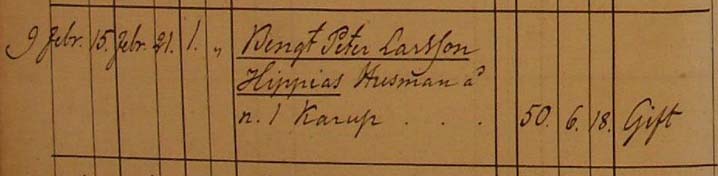 9 Febr. 15. Febr. 21. 1. „ Bengt Peter Larsson
Hippias Husman å
n. 1 Karup . . . 50. 6. 18. Gift